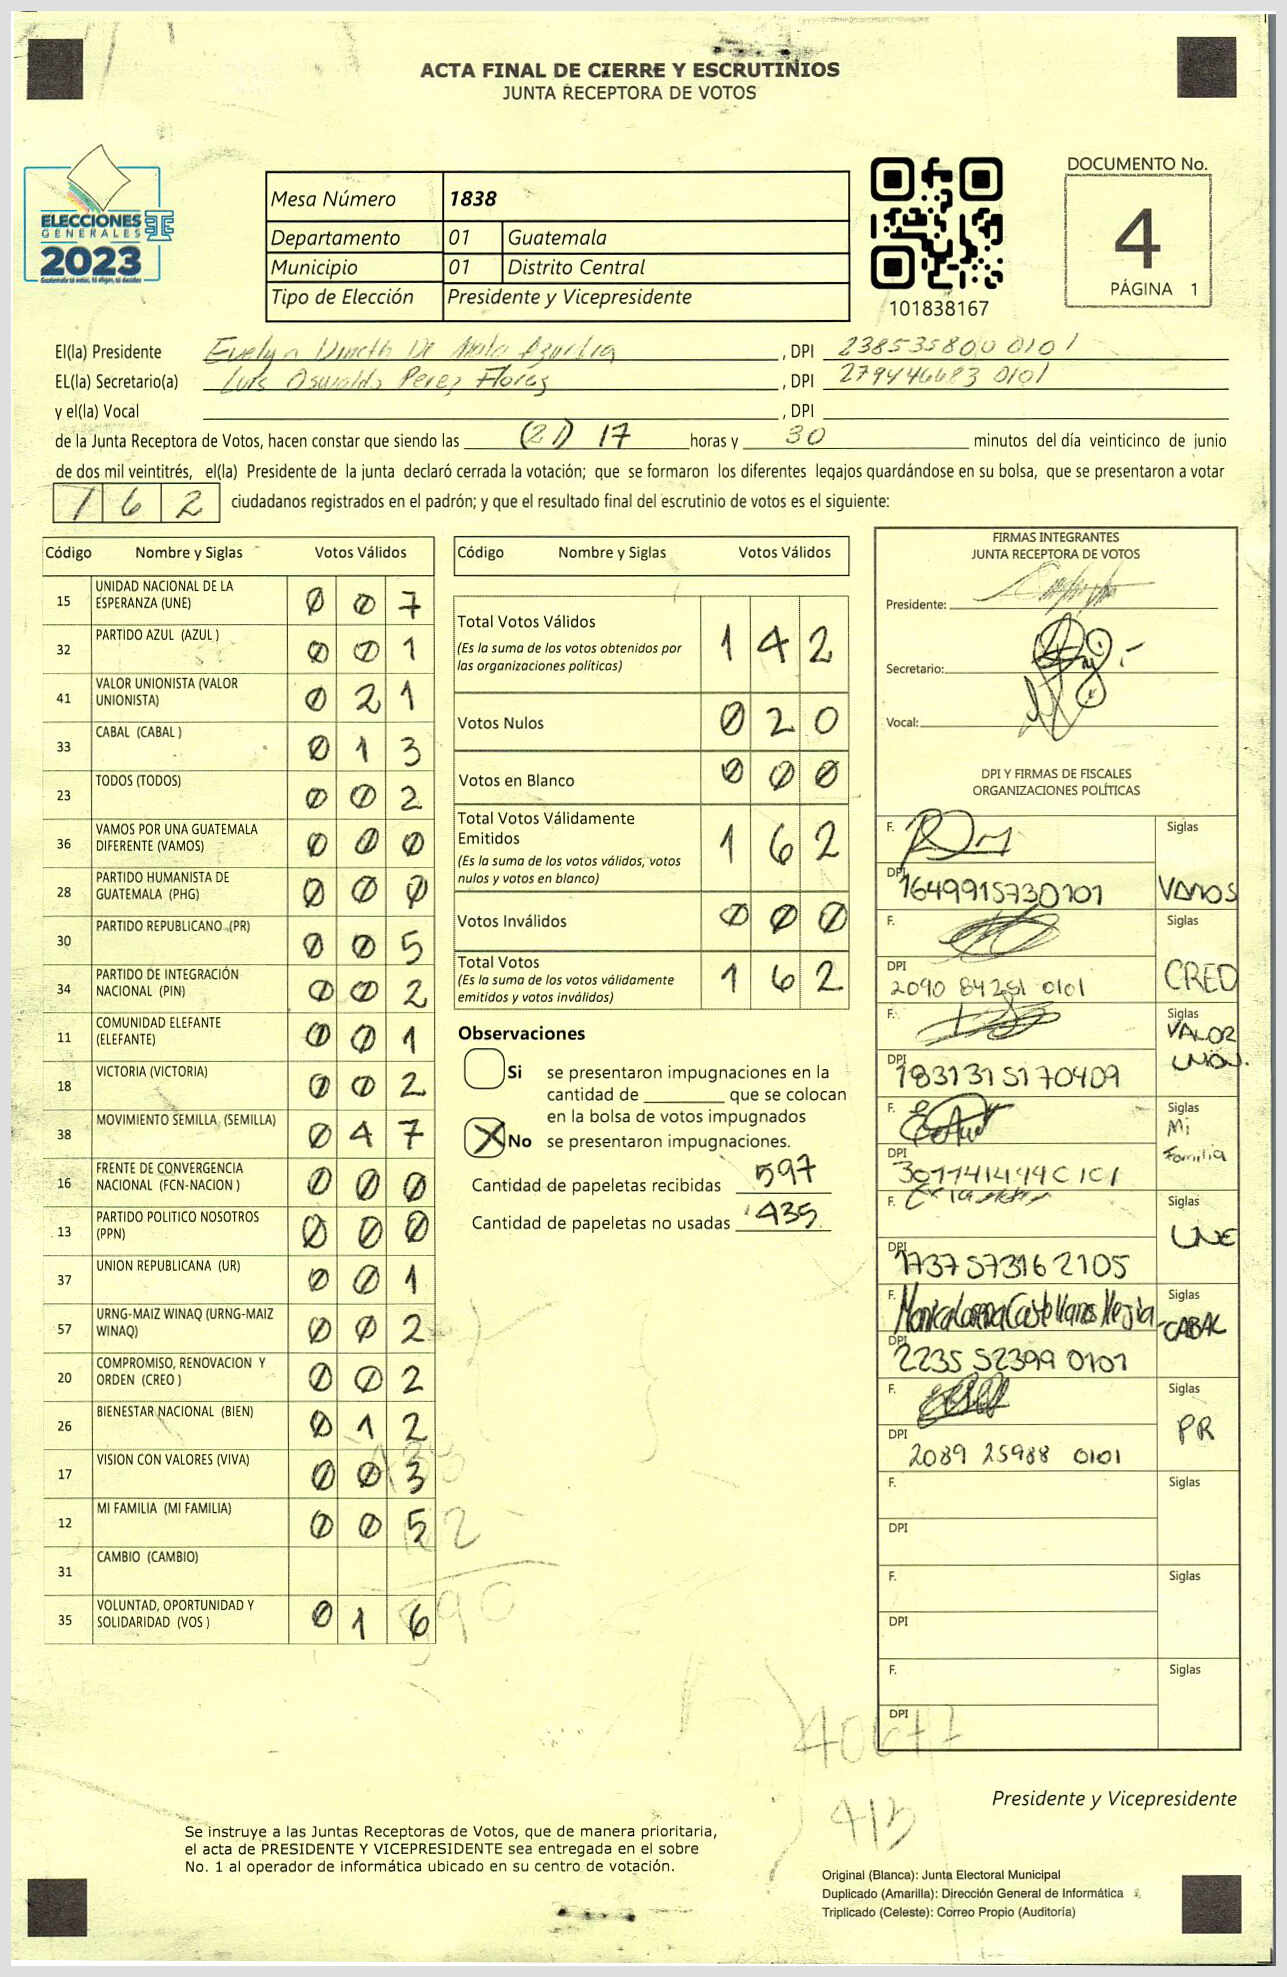 ACTA FINAL DE CIERRE Y ESCRUTINIOS
JUNTA RECEPTORA DE VOTOS
ELECCIONES
GENERALES
2023
Mesa Número 1838
Departamento 01 Guatemala
Municipio 01 Distrito Central
Tipo de Elección Presidente y Vicepresidente
101838167
DOCUMENTO No.
4
PÁGINA 1
El(la) Presidente Evelyn De , DPI 238535800 0101
EL(la) Secretario(a) Luis Oswaldo Perez Flores , DPI 279446683 0101
y el(la) Vocal , DPI
de la Junta Receptora de Votos, hacen constar que siendo las (21) 17 horas y 30 minutos del día veinticinco de junio
de dos mil veintitrés, el(la) Presidente de la junta declaró cerrada la votación; que se formaron los diferentes legajos guardándose en su bolsa, que se presentaron a votar
162 ciudadanos registrados en el padrón; y que el resultado final del escrutinio de votos es el siguiente:
Código Nombre y Siglas Votos Válidos
15 UNIDAD NACIONAL DE LA ESPERANZA (UNE) 0 0 7
32 PARTIDO AZUL (AZUL ) 0 0 1
41 VALOR UNIONISTA (VALOR UNIONISTA) 0 2 1
33 CABAL (CABAL ) 0 1 3
23 TODOS (TODOS) 0 0 2
36 VAMOS POR UNA GUATEMALA DIFERENTE (VAMOS) 0 0 0
28 PARTIDO HUMANISTA DE GUATEMALA (PHG) 0 0 0
30 PARTIDO REPUBLICANO (PR) 0 0 5
34 PARTIDO DE INTEGRACIÓN NACIONAL (PIN) 0 0 2
11 COMUNIDAD ELEFANTE (ELEFANTE) 0 0 1
18 VICTORIA (VICTORIA) 0 0 2
38 MOVIMIENTO SEMILLA (SEMILLA) 0 4 7
16 FRENTE DE CONVERGENCIA NACIONAL (FCN-NACION ) 0 0 0
13 PARTIDO POLITICO NOSOTROS (PPN) 0 0 0
37 UNION REPUBLICANA (UR) 0 0 1
57 URNG-MAIZ WINAQ (URNG-MAIZ WINAQ) 0 0 2
20 COMPROMISO, RENOVACION Y ORDEN (CREO ) 0 0 2
26 BIENESTAR NACIONAL (BIEN) 0 1 2
17 VISION CON VALORES (VIVA) 0 0 3
12 MI FAMILIA (MI FAMILIA) 0 0 5
31 CAMBIO (CAMBIO)
35 VOLUNTAD, OPORTUNIDAD Y SOLIDARIDAD (VOS ) 0 1 6
Código Nombre y Siglas Votos Válidos
Total Votos Válidos 1 4 2
(Es la suma de los votos obtenidos por
las organizaciones políticas)
Votos Nulos 0 2 0
Votos en Blanco 0 0 0
Total Votos Válidamente
Emitidos 1 6 2
(Es la suma de los votos válidos, votos
nulos y votos en blanco)
Votos Inválidos 0 0 0
Total Votos 1 6 2
(Es la suma de los votos válidamente
emitidos y votos inválidos)
Observaciones
Si se presentaron impugnaciones en la
cantidad de ________ que se colocan
en la bolsa de votos impugnados
X No se presentaron impugnaciones.
Cantidad de papeletas recibidas 597
Cantidad de papeletas no usadas 435
FIRMAS INTEGRANTES
JUNTA RECEPTORA DE VOTOS
Presidente:
Secretario:
Vocal:
DPI Y FIRMAS DE FISCALES
ORGANIZACIONES POLÍTICAS
F. Siglas
DPI 1649915730101 VAMOS
F. Siglas
DPI 2090 84251 0101 CREO
F. Siglas
VALOR
DPI 1831315170409 UNION.
F. Siglas
Mi
DPI Familia
F. Siglas
DPI 1737573162105 UNE
F. Monica Lorena Castellanos Mejia Siglas
DPI 2235 52399 0101 CABAL
F. Siglas
DPI 2089 25988 0101 PR
F. Siglas
DPI
F. Siglas
DPI
F. Siglas
DPI
413
Presidente y Vicepresidente
Se instruye a las Juntas Receptoras de Votos, que de manera prioritaria,
el acta de PRESIDENTE Y VICEPRESIDENTE sea entregada en el sobre
No. 1 al operador de informática ubicado en su centro de votación.
Original (Blanca): Junta Electoral Municipal
Duplicado (Amarilla): Dirección General de Informática
Triplicado (Celeste): Correo Propio (Auditoría)